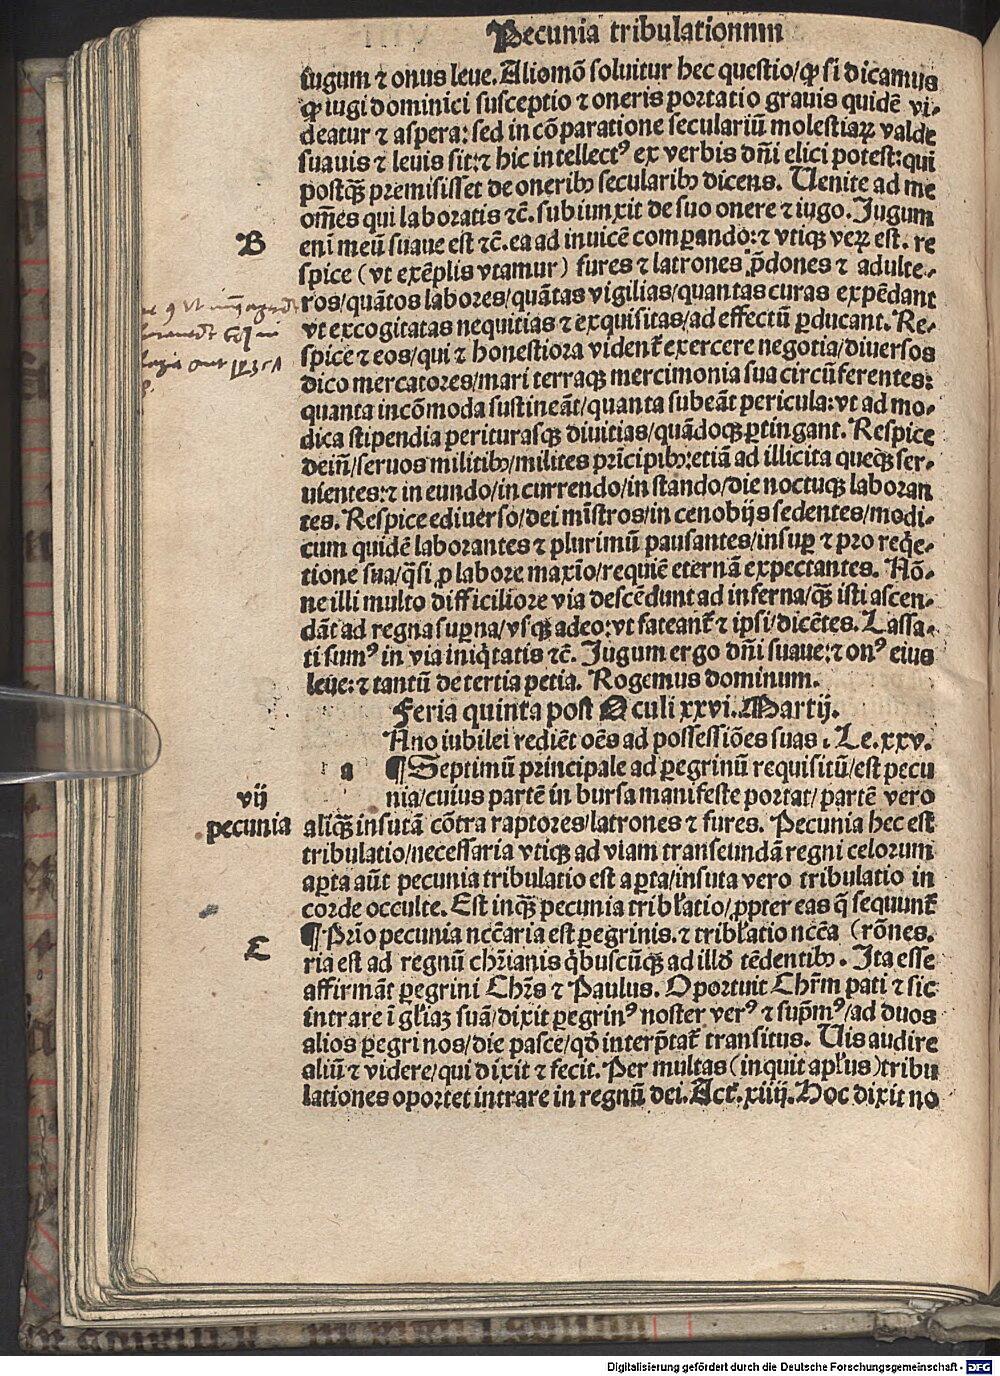 Pecunia tribulationum
iugum ⁊ onus leue. Aliomō soluitur hec questio/ꝙ si dicamus
ꝙ iugi dominici susceptio ⁊ oneris portatio grauis quidē vi⸗
deatur ⁊ aspera: sed in cōparatione seculariū molestiaꝝ valde
suauis ⁊ leuis sit: ⁊ hic intellectꝰ ex verbis dn̄i elici potest: qui
postqȝ premisisset de oneribꝫ secularibꝫ dicens. Uenite ad me
om̄es qui laboratis ⁊c̄. subiunxit de suo onere ⁊ iugo. Jugum
B
enī meū suaue est ⁊c̄. ea ad inuicē comꝑando: ⁊ vtiqꝫ veꝝ est. re
spice (vt exēplis vtamur) fures ⁊ latrones p̄dones ⁊ adulte⸗
ros/quātos labores/quātas vigilias/quantas curas expēdant
vt excogitatas nequitias ⁊ exquisitas/ad effectū ꝑducant. Re⸗
spice ⁊ eos/qui ⁊ honestiora vident᷑ exercere negotia/diuersos
dico mercatores/mari terraqꝫ mercimonia sua circūferentes:
quanta incōmoda sustineāt/quanta subeāt pericula: vt ad mo⸗
dica stipendia periturasqꝫ diuitias/quādoqꝫ ꝑtingant. Respice
dein̄/seruos militibꝫ/milites prīcipibꝫ: etiā ad illicita queqꝫ ser⸗
uientes: ⁊ in eundo/in currendo/in stando/die noctuqꝫ laboran
tes. Respice ediuerso/dei mīstros/in cenobijs sedentes/modi⸗
cum quidē laborantes ⁊ plurimū pausantes/insuꝑ ⁊ pro reqͥe⸗
tione sua/qͣsi ꝓ labore maxīo/requiē eternā expectantes. Nō⸗
ne illi multo difficiliore via descēdunt ad inferna/qȝ isti ascen⸗
dāt ad regna suꝑna/vsqꝫ adeo: vt fateant᷑ ⁊ ipsi/dicētes. Lassa⸗
ti sumꝰ in via iniqͥtatis ⁊c̄. Jugum ergo dn̄i suaue: ⁊ onꝰ eius
leue: ⁊ tantū de tertia petia. Rogemus dominum.
Feria quinta post Oculi xxvi. Martij.
Ano iubilei rediēt oēs ad possessiōes suas. Le. xxv.
a ¶ Septimū principale ad ꝑegrinū requisitū/est pecu
vij
nia/cuius partē in bursa manifeste portat/partē vero
pecunia
aliqȝ insutā cōtra raptores/latrones ⁊ fures. Pecunia hec est
tribulatio/necessaria vtiqꝫ ad viam transeundā regni celorum
aꝑta aūt pecunia tribulatio est aꝑta/insuta vero tribulatio in
corde occulte. Est inqȝ pecunia tribl̄atio/ꝓpter eas q̄ sequunt᷑
C
¶ Prīo pecunia ncc̄aria est ꝑegrinis. ⁊ tribl̄atio ncc̄a (rōnes.
ria est ad regnū chr̄ianis qͥbuscūqꝫ ad illd̄ tēdentibꝫ. Ita esse
affirmāt ꝑegrini Chr̄s ⁊ Paulus. Oportuit Chr̄m pati ⁊ sic
intrare ī gl̄iaȝ suā/dixit ꝑegrinꝰ noster verꝰ ⁊ sup̄mꝰ/ad duos
alios ꝑegrinos/die pasce/qd̄ interp̄tat᷑ transitus. Uis audire
aliū ⁊ videre/qui dixit ⁊ fecit. Per multas (inquit apl̄us) tribu
lationes oportet intrare in regnū dei. Act. xiiij. Hoc dixit no
Digitalisierung gefördert durch die Deutsche Forschungsgemeinschaft - DFG